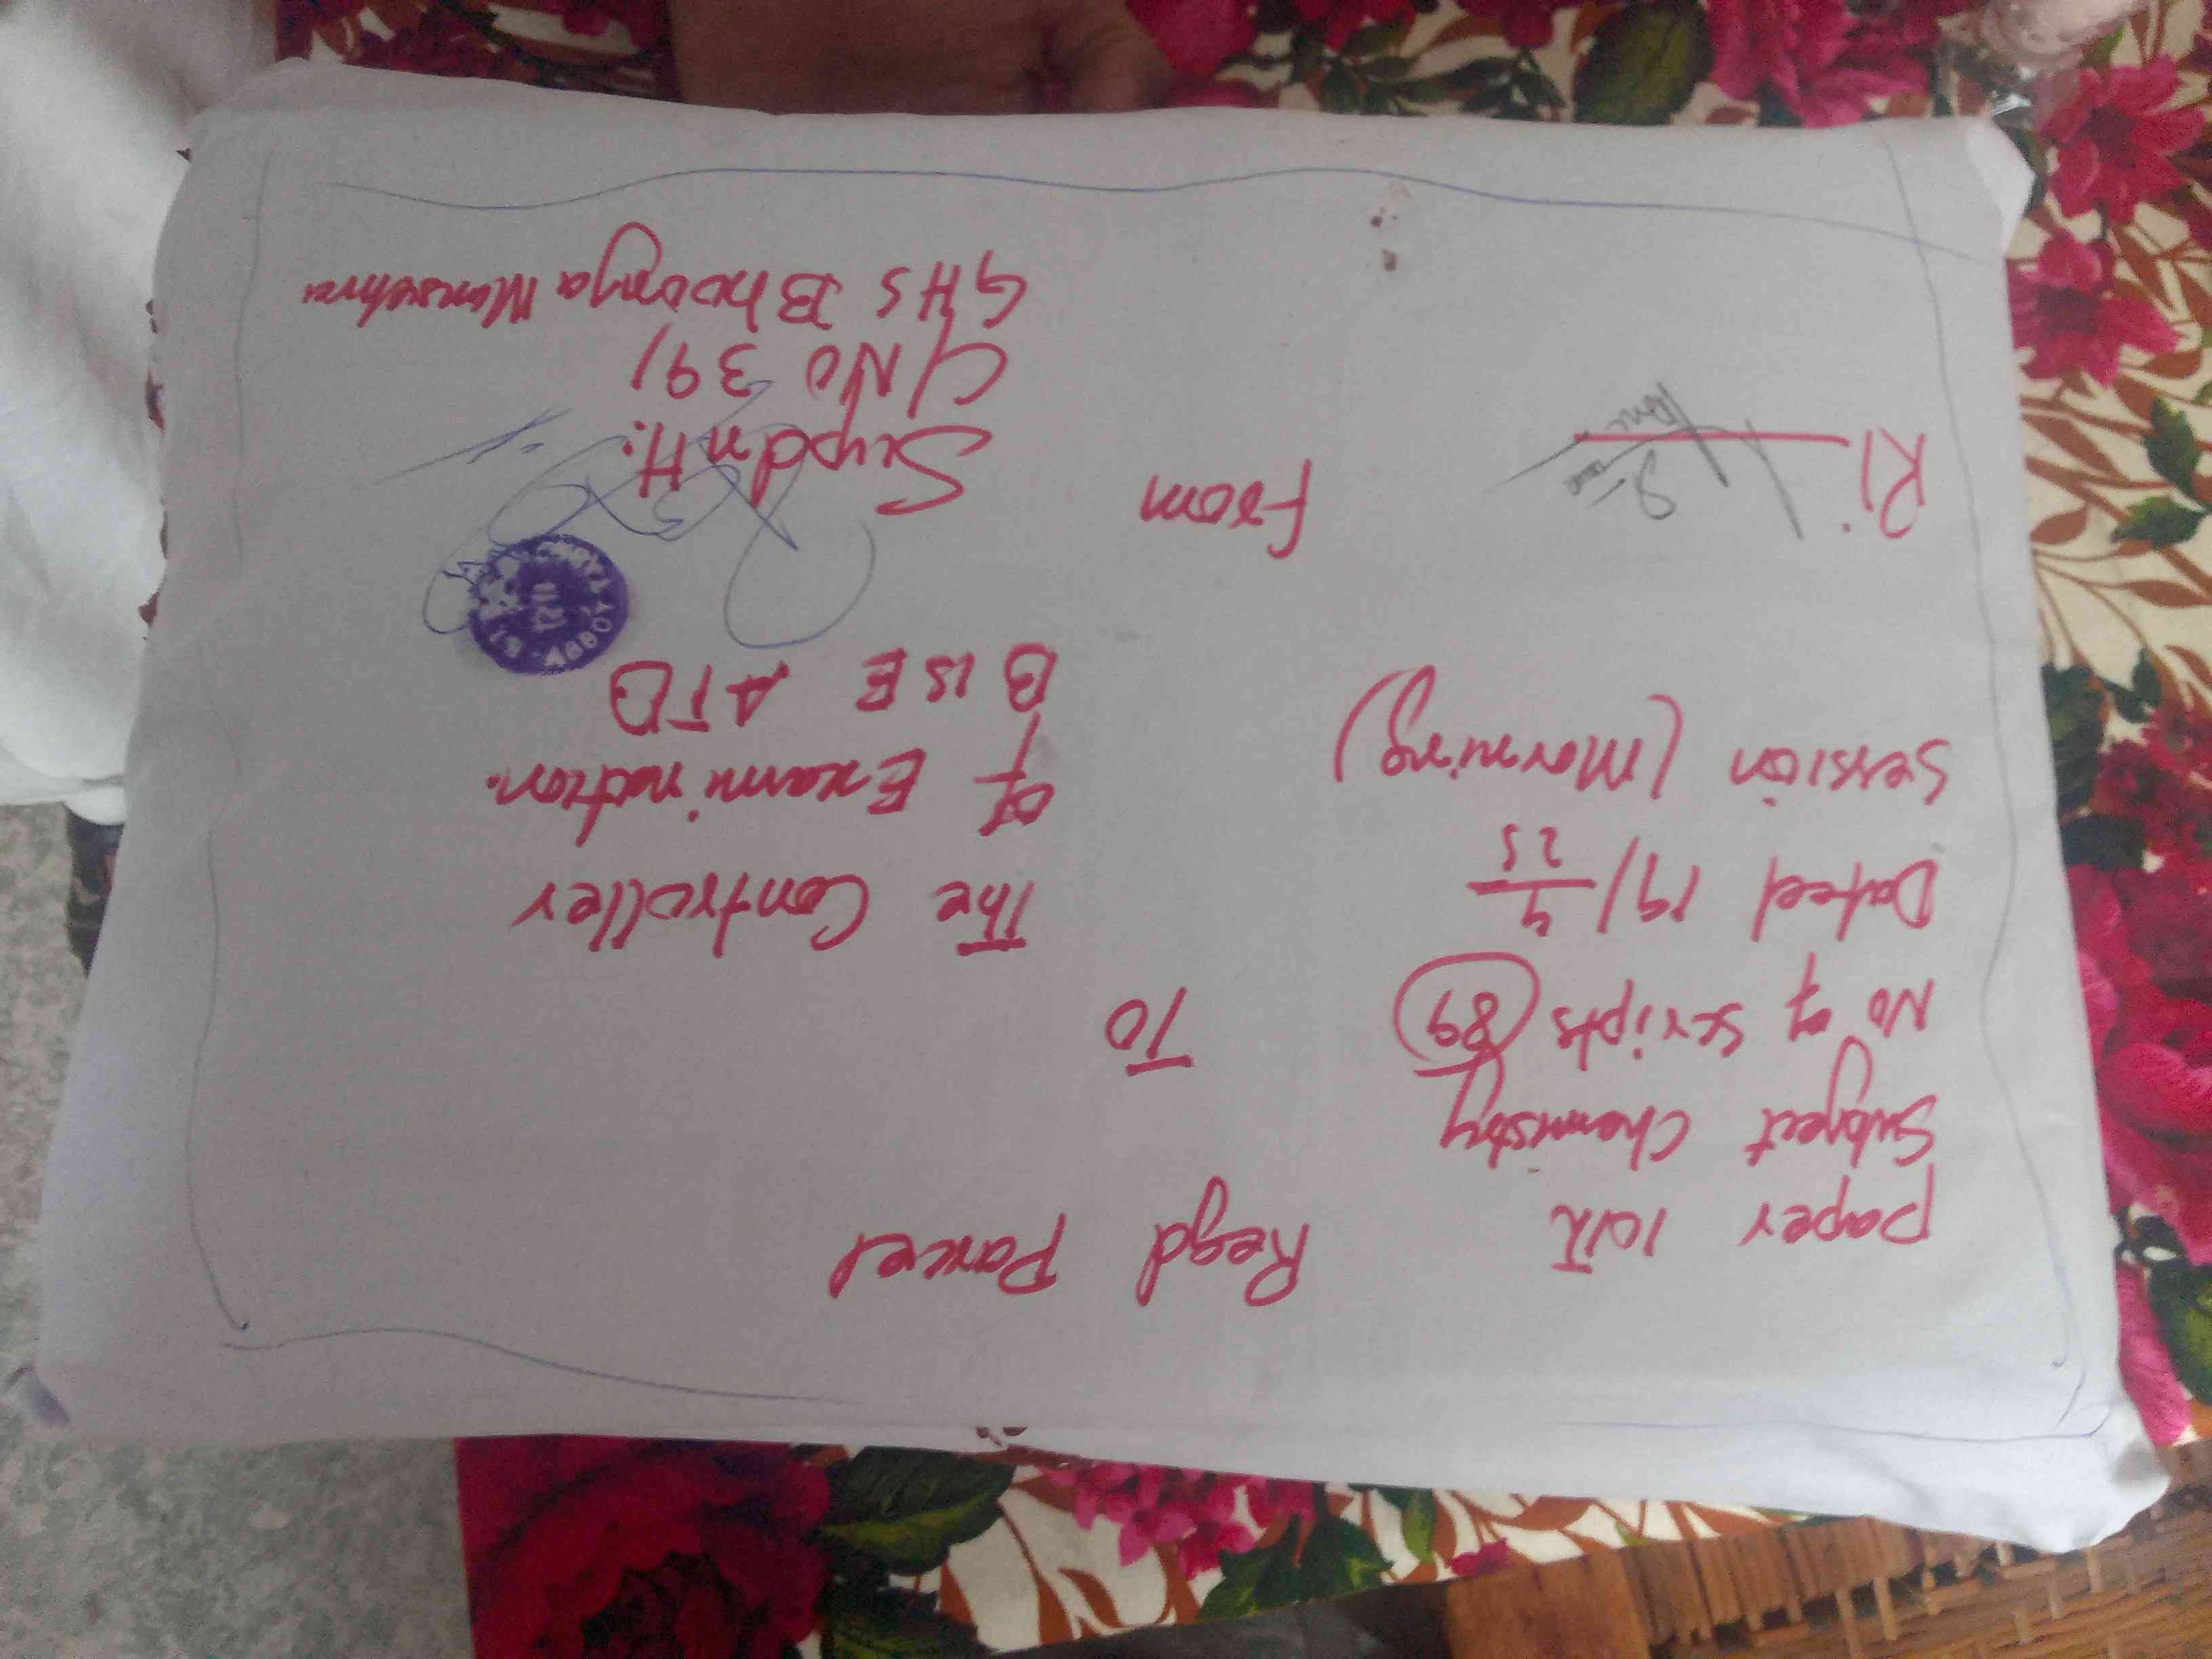 Paper 10th
Subject Chemistry
No of scripts 89
Dated 19/4/25
Session (Morning)
R1
Regd Parcel
To
The Controller
of Examination.
BISE ATD
From
Supdntt:
C/No 391
GHS Bhoonja Mansehra